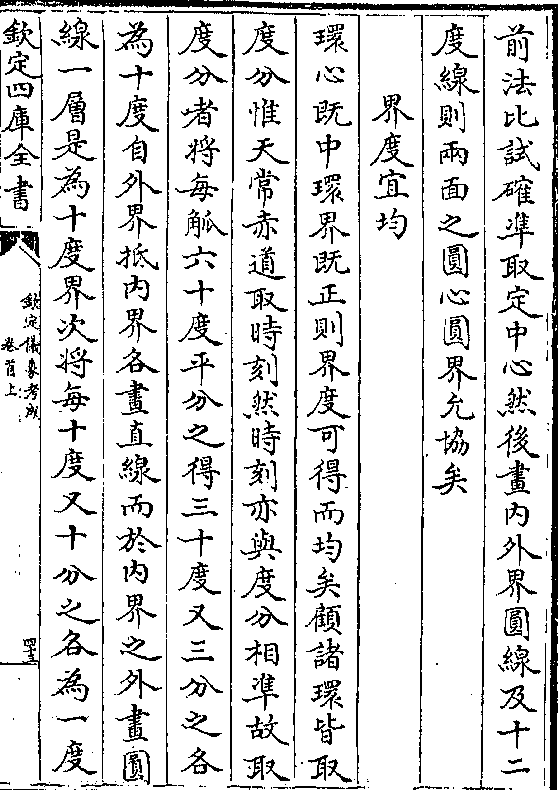 前法比試確準取定中心然後畫内外界圓線及十二
度線則兩面之圓心圓界允協矣
界度宜均
環心既中環界既正則界度可得而均矣顧諸環皆取
度分惟天常赤道取時刻然時刻亦與度分相準故取
度分者將每觚六十度平分之得三十度又三分之各
為十度自外界抵内界各畫直線而於内界之外畫圓
線一層是為十度界次將每十度又十分之各為一度
欽定四庫全書
欽定儀象考成
卷首上
四十三